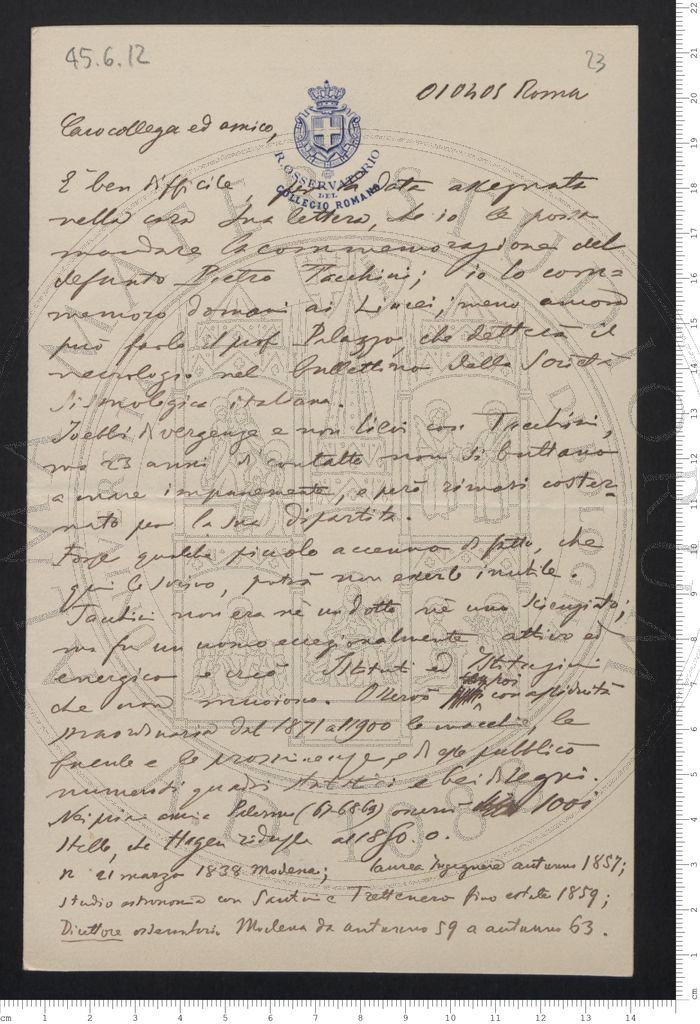 45.6.12
23
010405 Roma
R. OSSERVATORIO
DEL
COLLEGIO ROMANO
Caro collega ed amico,
È ben difficile, per la data assegnata
nella cara Sua lettera, che io le possa
mandare la commemorazione del
defunto Pietro Tacchini; io lo com=
memoro domani ai Lincei; meno ancora
può farlo il prof Palazzo, che detterà il
necrologio nel Bullettino della Società
Sismologica italiana.
Io ebbi divergenze e non lievi con Tacchini,
ma 23 anni di contatto non si buttano
a mare impunemente, e però rimasi coster-
nato per la sua dipartita.
Forse qualche piccolo accenno di fatto, che
qui le scrivo, potrà non esserle inutile.
Tacchini non era nè un dotto nè uno scienziato;
ma fu un uomo eccezionalmente attivo ed
energico e creò Istituti ed Istituzioni
che non muoiono. Osservò con assiduità
straordinaria dal 1871 al 1900 le macchie, le
facule e le prominenze, e di esse pubblicò
numerosi quadri statistici e bei disegni.
Nei primi anni a Palermo (67-68 69) osservò 1001
stelle, che Hagen ridusse al 1850.0.
n 21 marzo 1838 Modena; laurea ingegnere autunno 1857;
studio astronomia con Santini e Trettenero fino estate 1859;
Direttore osservatorio Modena da autunno 59 a autunno 63.